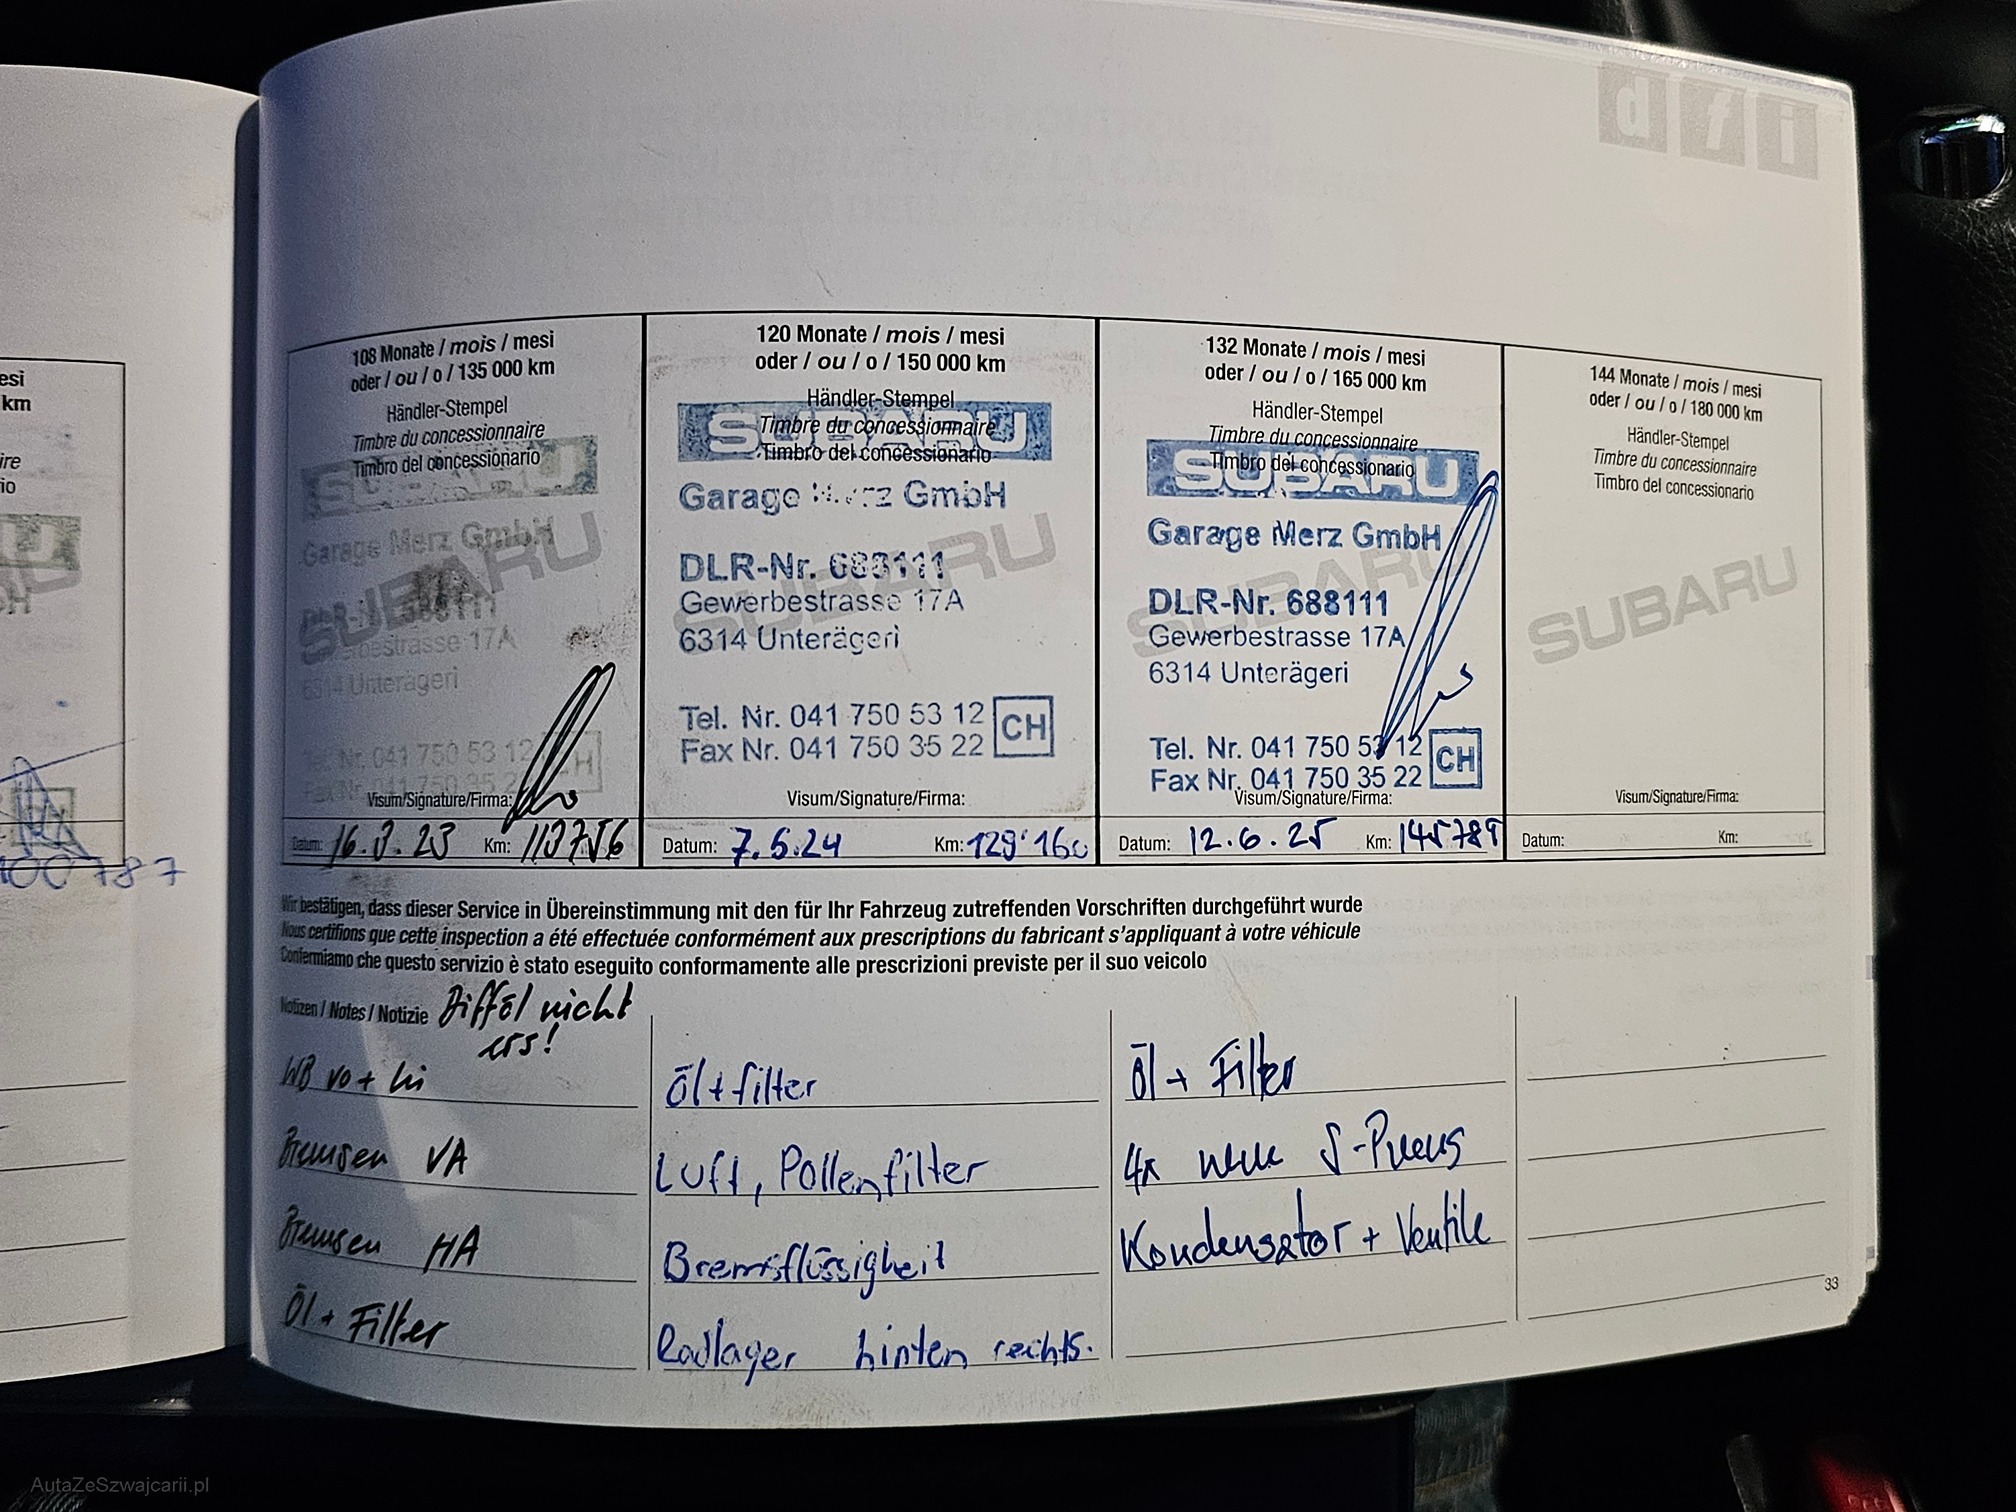 dfi
esi
km
ire
io
100787
108 Monate / mois / mesi
oder / ou / o / 135 000 km
Händler-Stempel
Timbre du concessionnaire
Timbro del concessionario
SUBARU
Garage Merz GmbH
SUBARU
DLR-Nr. 688111
Gewerbestrasse 17A
6314 Unterägeri
Tel. Nr. 041 750 53 12
Fax Nr. 041 750 35 22
CH
Visum/Signature/Firma:
Datum: 16.3.23 Km: 113756
120 Monate / mois / mesi
oder / ou / o / 150 000 km
Händler-Stempel
Timbre du concessionnaire
Timbro del concessionario
SUBARU
Garage Merz GmbH
SUBARU
DLR-Nr. 688111
Gewerbestrasse 17A
6314 Unterägeri
Tel. Nr. 041 750 53 12
Fax Nr. 041 750 35 22
CH
Visum/Signature/Firma:
Datum: 7.5.24 Km: 129'160
132 Monate / mois / mesi
oder / ou / o / 165 000 km
Händler-Stempel
Timbre du concessionnaire
Timbro del concessionario
SUBARU
Garage Merz GmbH
SUBARU
DLR-Nr. 688111
Gewerbestrasse 17A
6314 Unterägeri
Tel. Nr. 041 750 53 12
Fax Nr. 041 750 35 22
CH
Visum/Signature/Firma:
Datum: 12.6.25 Km: 145789
144 Monate / mois / mesi
oder / ou / o / 180 000 km
Händler-Stempel
Timbre du concessionnaire
Timbro del concessionario
SUBARU
Visum/Signature/Firma:
Datum: Km:
Wir bestätigen, dass dieser Service in Übereinstimmung mit den für Ihr Fahrzeug zutreffenden Vorschriften durchgeführt wurde
Nous certifions que cette inspection a été effectuée conformément aux prescriptions du fabricant s'appliquant à votre véhicule
Confermiamo che questo servizio è stato eseguito conformamente alle prescrizioni previste per il suo veicolo
Notizen / Notes / Notizie Difföl nicht
ers!
WB vo + hi
Bremsen VA
Bremsen HA
Öl + Filter
Öl + filter
Luft, Pollenfilter
Bremsflüssigheit
Radlager hinten rechts.
Öl + Filter
4x neue S-Pneus
Kondensator + Ventile
33
AutaZeSzwajcarii.pl